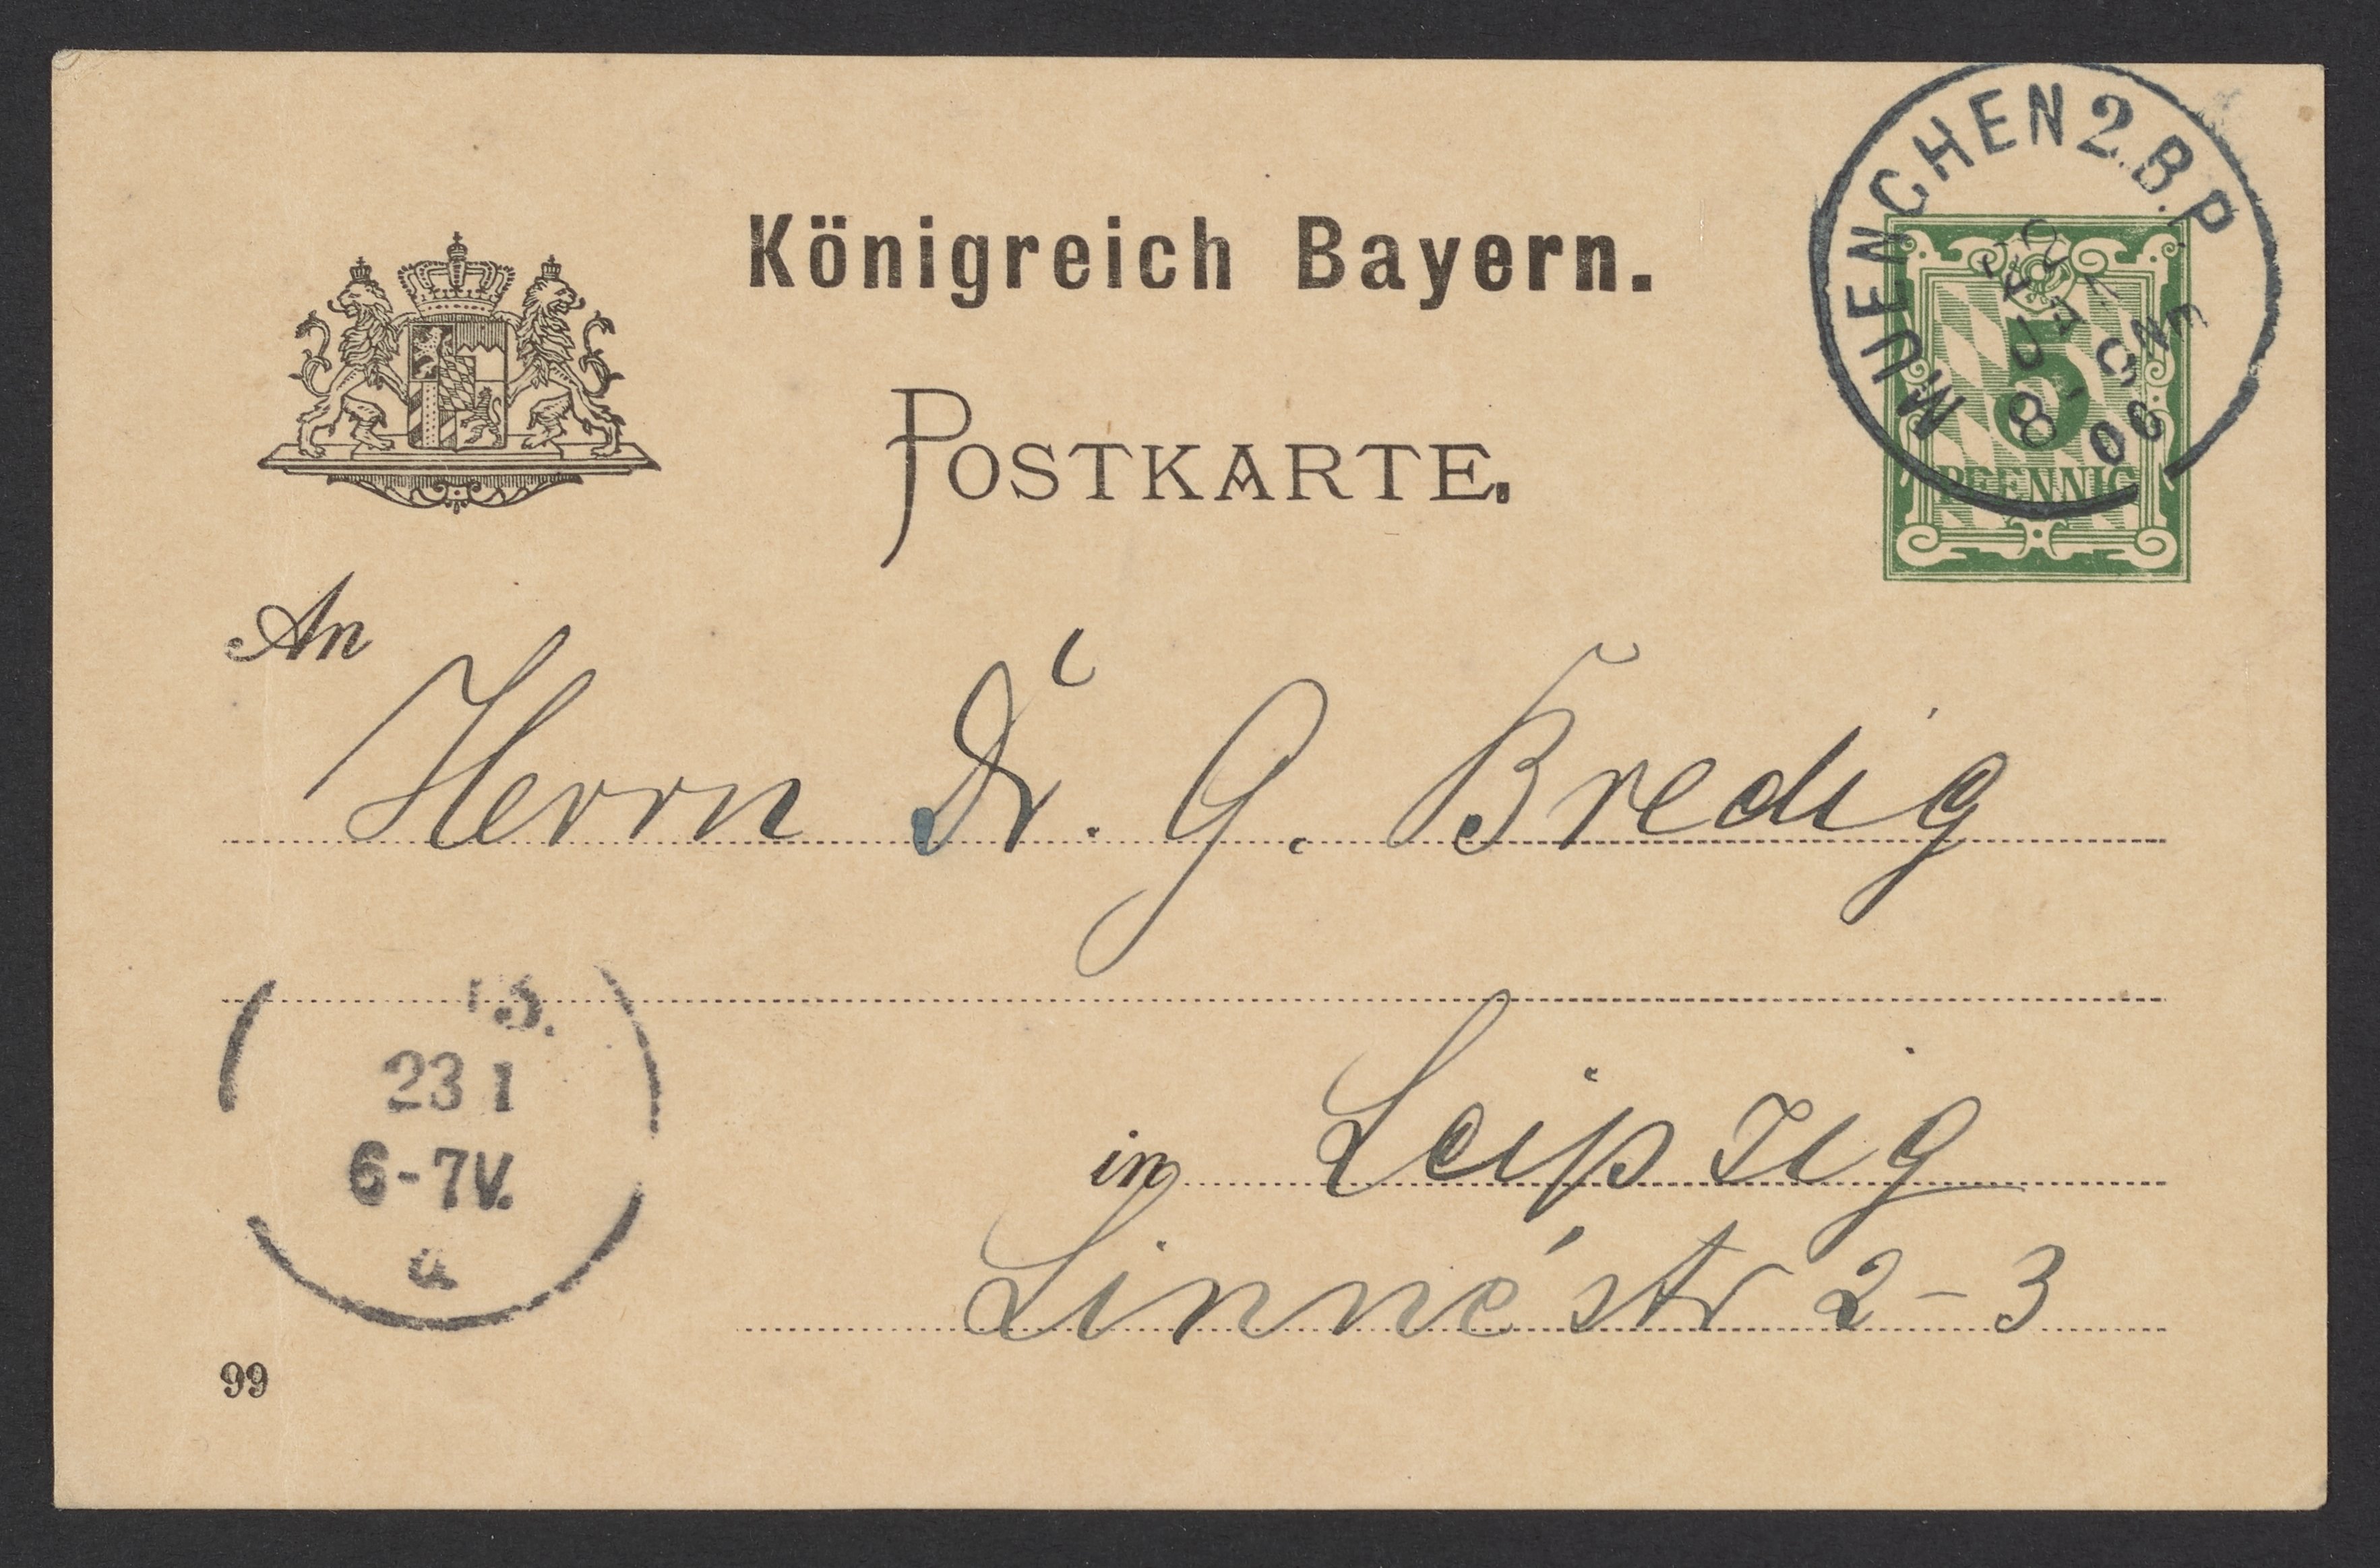 Königreich Bayern.
POSTKARTE.
MUENCHEN 2. B. P.
22
JAN
8
00
5
PFENNIG
An
Herrn Dr. G. Bredig
in Leipzig
Linné str 2-3
3.
23 1
6-7V.
a
99